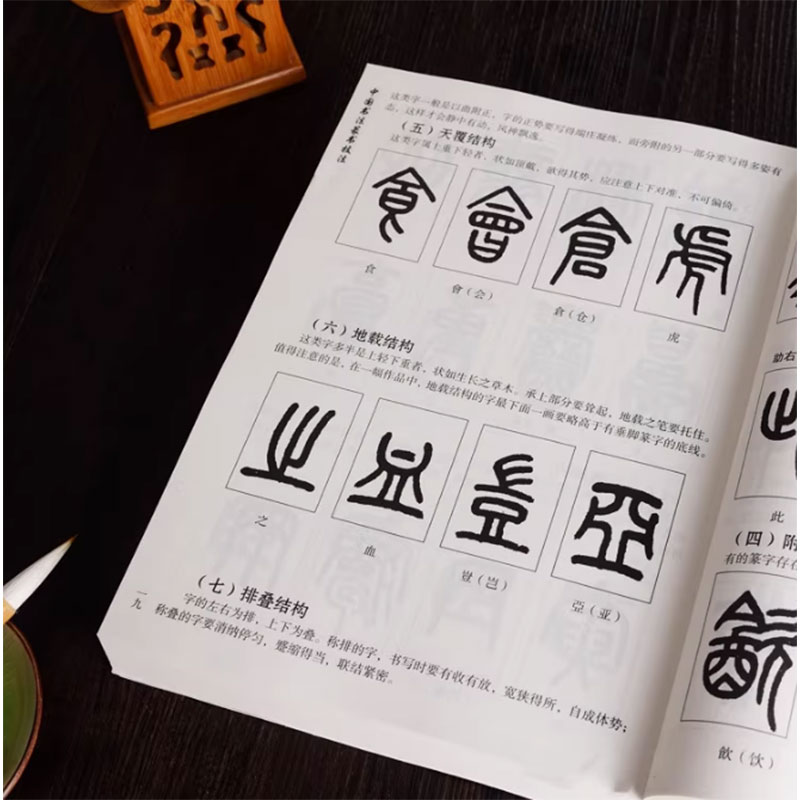 中国书法篆书技法
这类字一般是以曲附正，字的正势要写得端庄凝炼，而旁附的另一部分要写得多姿有
态，这样才会静中有动，风神飘逸。
（五）天覆结构
这类字属上重下轻者，状如顶戴，欲得其势，应注意上下对准，不可偏倚。
食 會 倉 虎
食
會（会）
倉（仓）
虎
（六）地载结构
这类字多半是上轻下重者，状如生长之草木。承上部分要耸起，地载之笔要托住。
值得注意的是，在一幅作品中，地载结构的字最下面一画要略高于有垂脚篆字的底线。
之 血 豈 亞
之
血
豈（岂）
亞（亚）
（七）排叠结构
字的左右为排，上下为叠。称排的字，书写时要有收有放，宽狭得所，自成体势；
称叠的字要消纳停匀，蹙缩得当，联结紧密。
一九
助右
此
此
（四）附
有的篆字存在
飲
飲（饮）